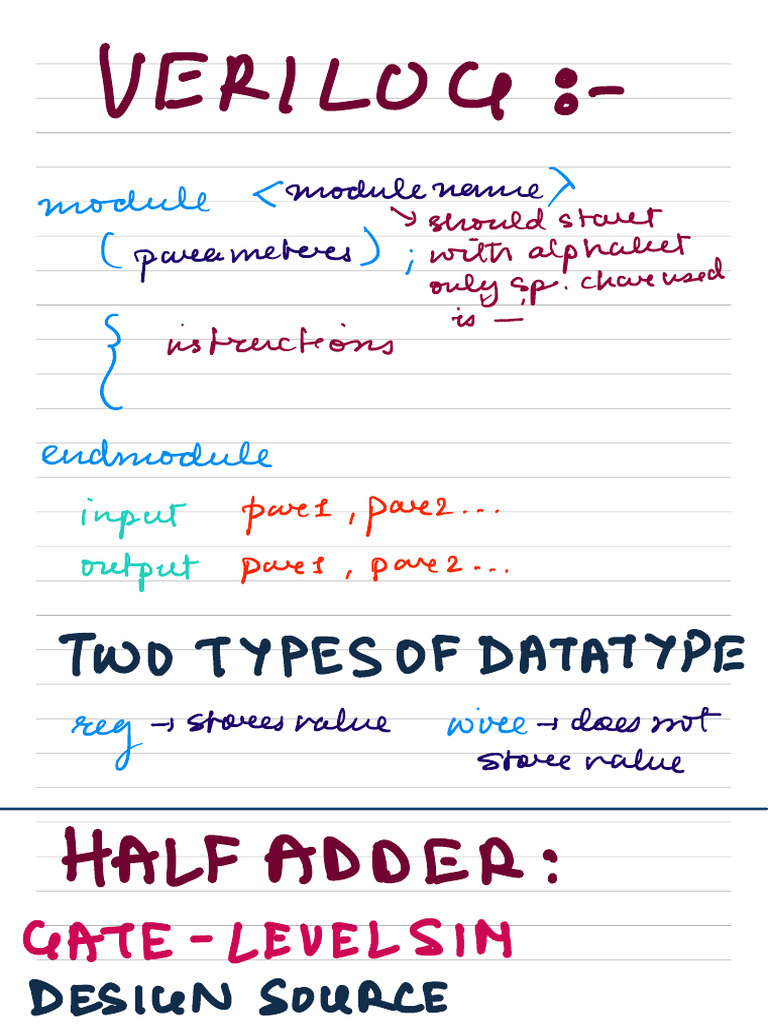 VERILOG :-
module <module name>
(parameters) ;
→ should start
with alphabet
only sp. char used
is _
{ instructions
endmodule
input par1, par2...
output par1, par2...
TWO TYPES OF DATATYPE
reg → stores value
wire → does not
store value
HALF ADDER:
GATE-LEVEL SIM
DESIGN SOURCE